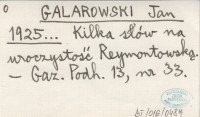 0 GALAROWSKI Jan
1925... Kilka słów na
uroczystość Reymontowską.
– Gaz. Podh. 13, nr 33.
bJ/016/0484